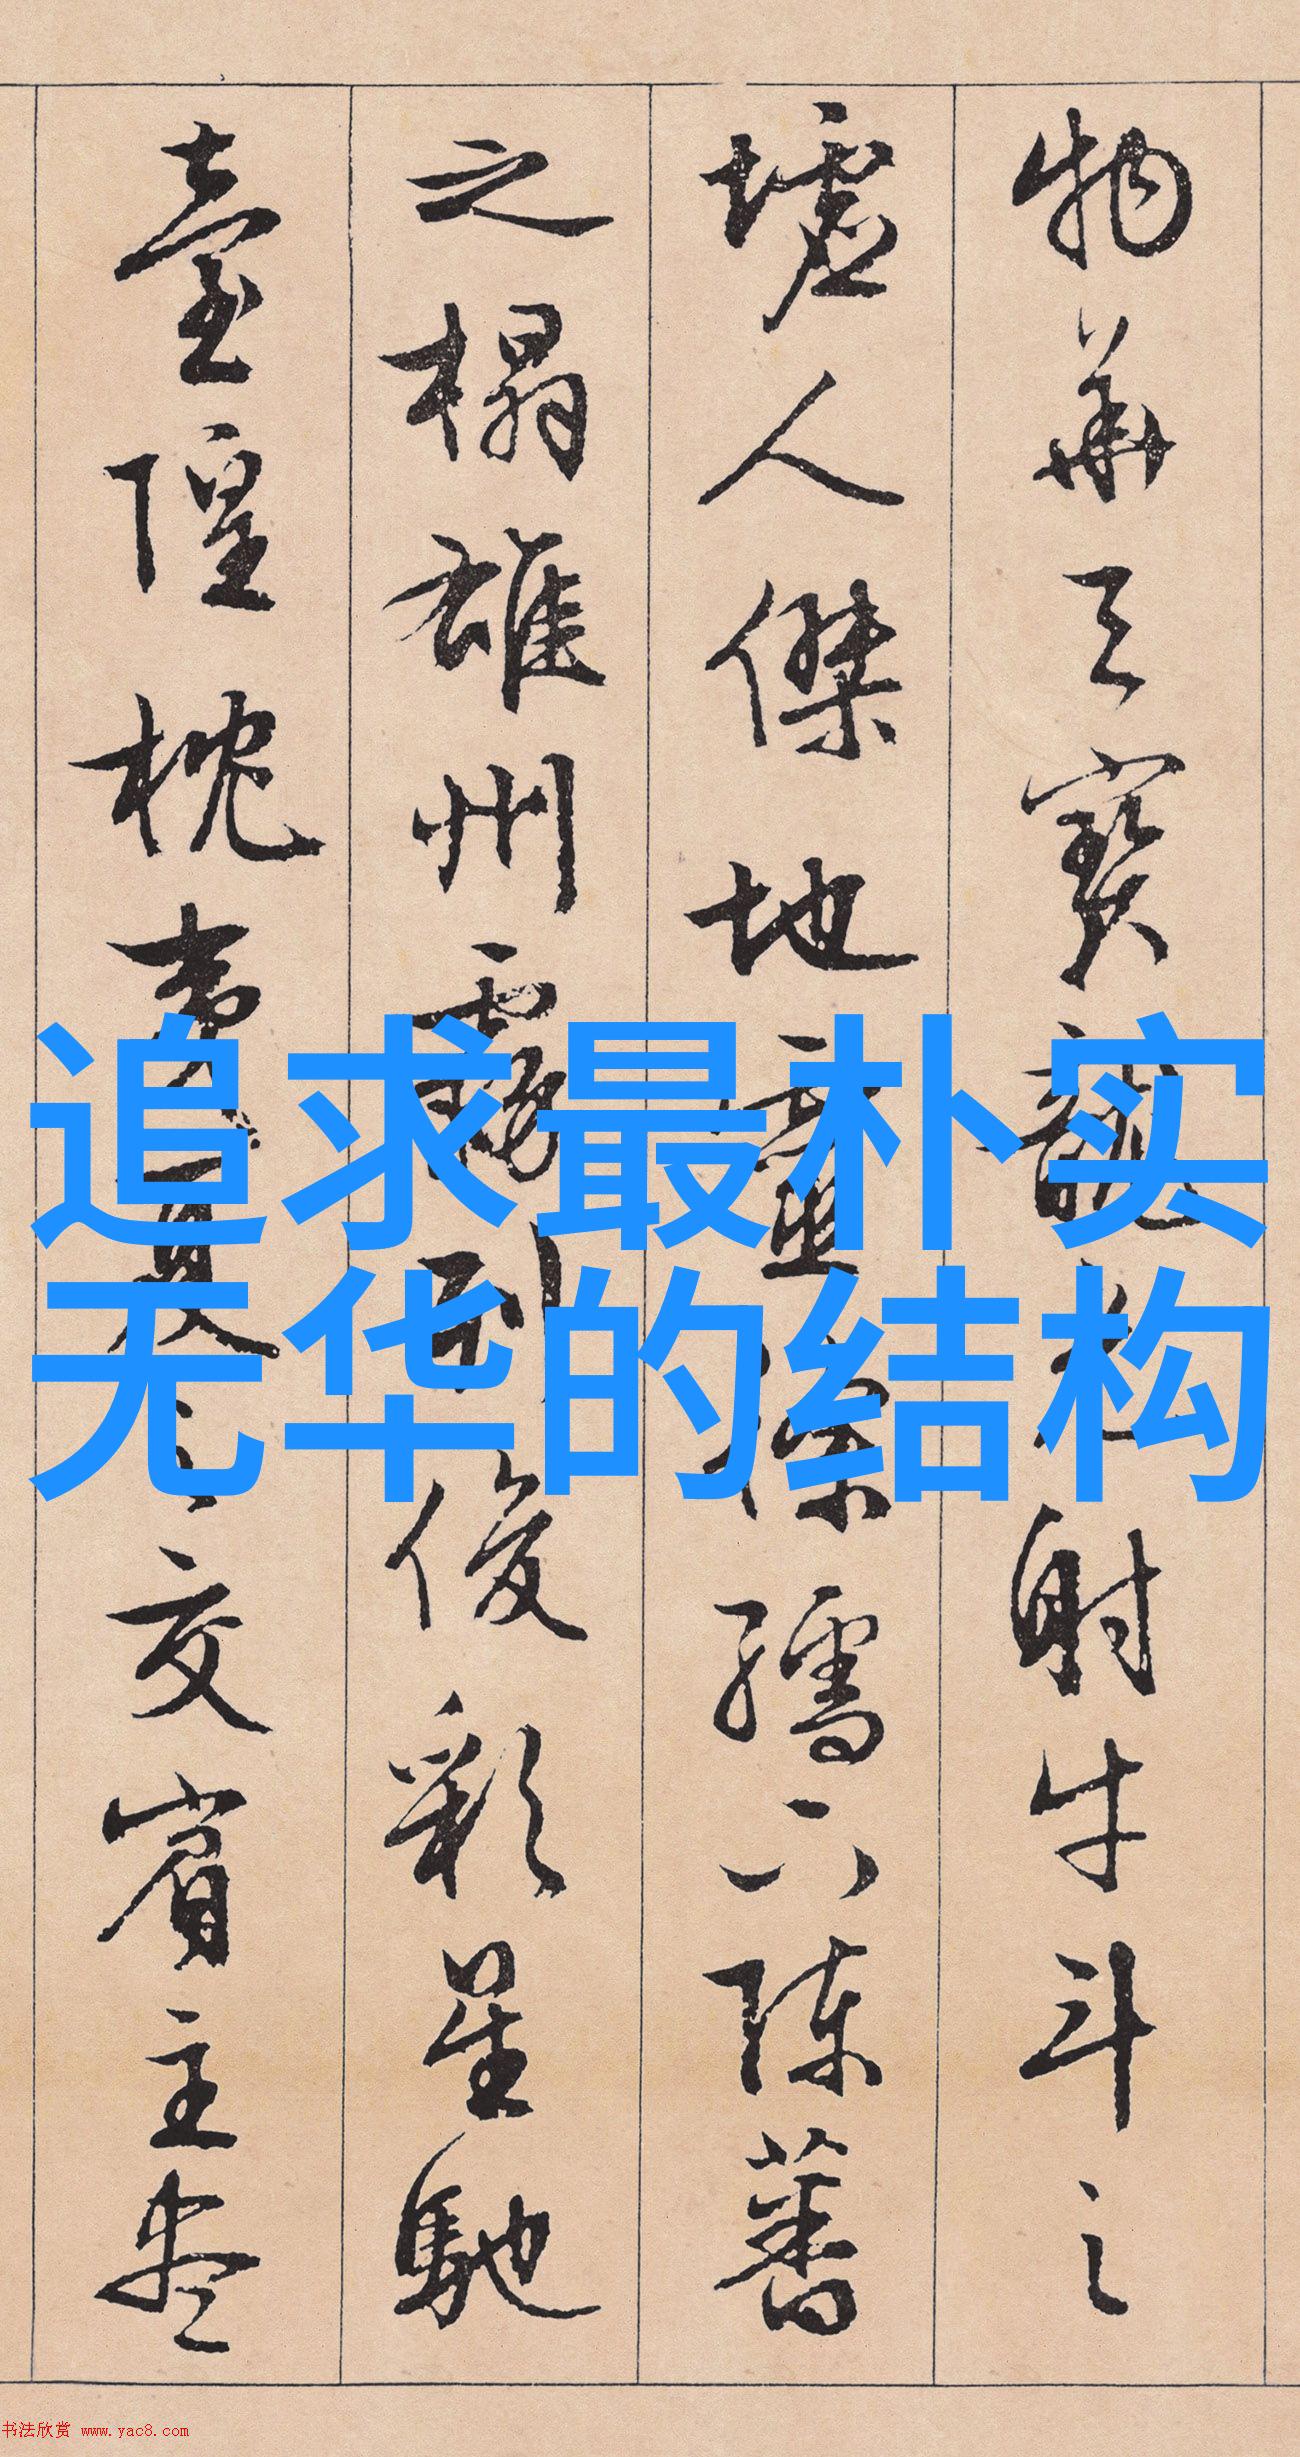 物華天寶龍光射牛斗之
墟人傑地靈徐孺下陳蕃
之榻雄州霧列俊彩星馳
臺隍枕夷夏之交賓主盡
追求最朴实
无华的结构
书法欣赏 www.yac8.com